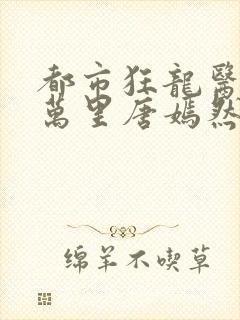 都市狂龍醫
萬里唐嫣然
绵羊不喫草